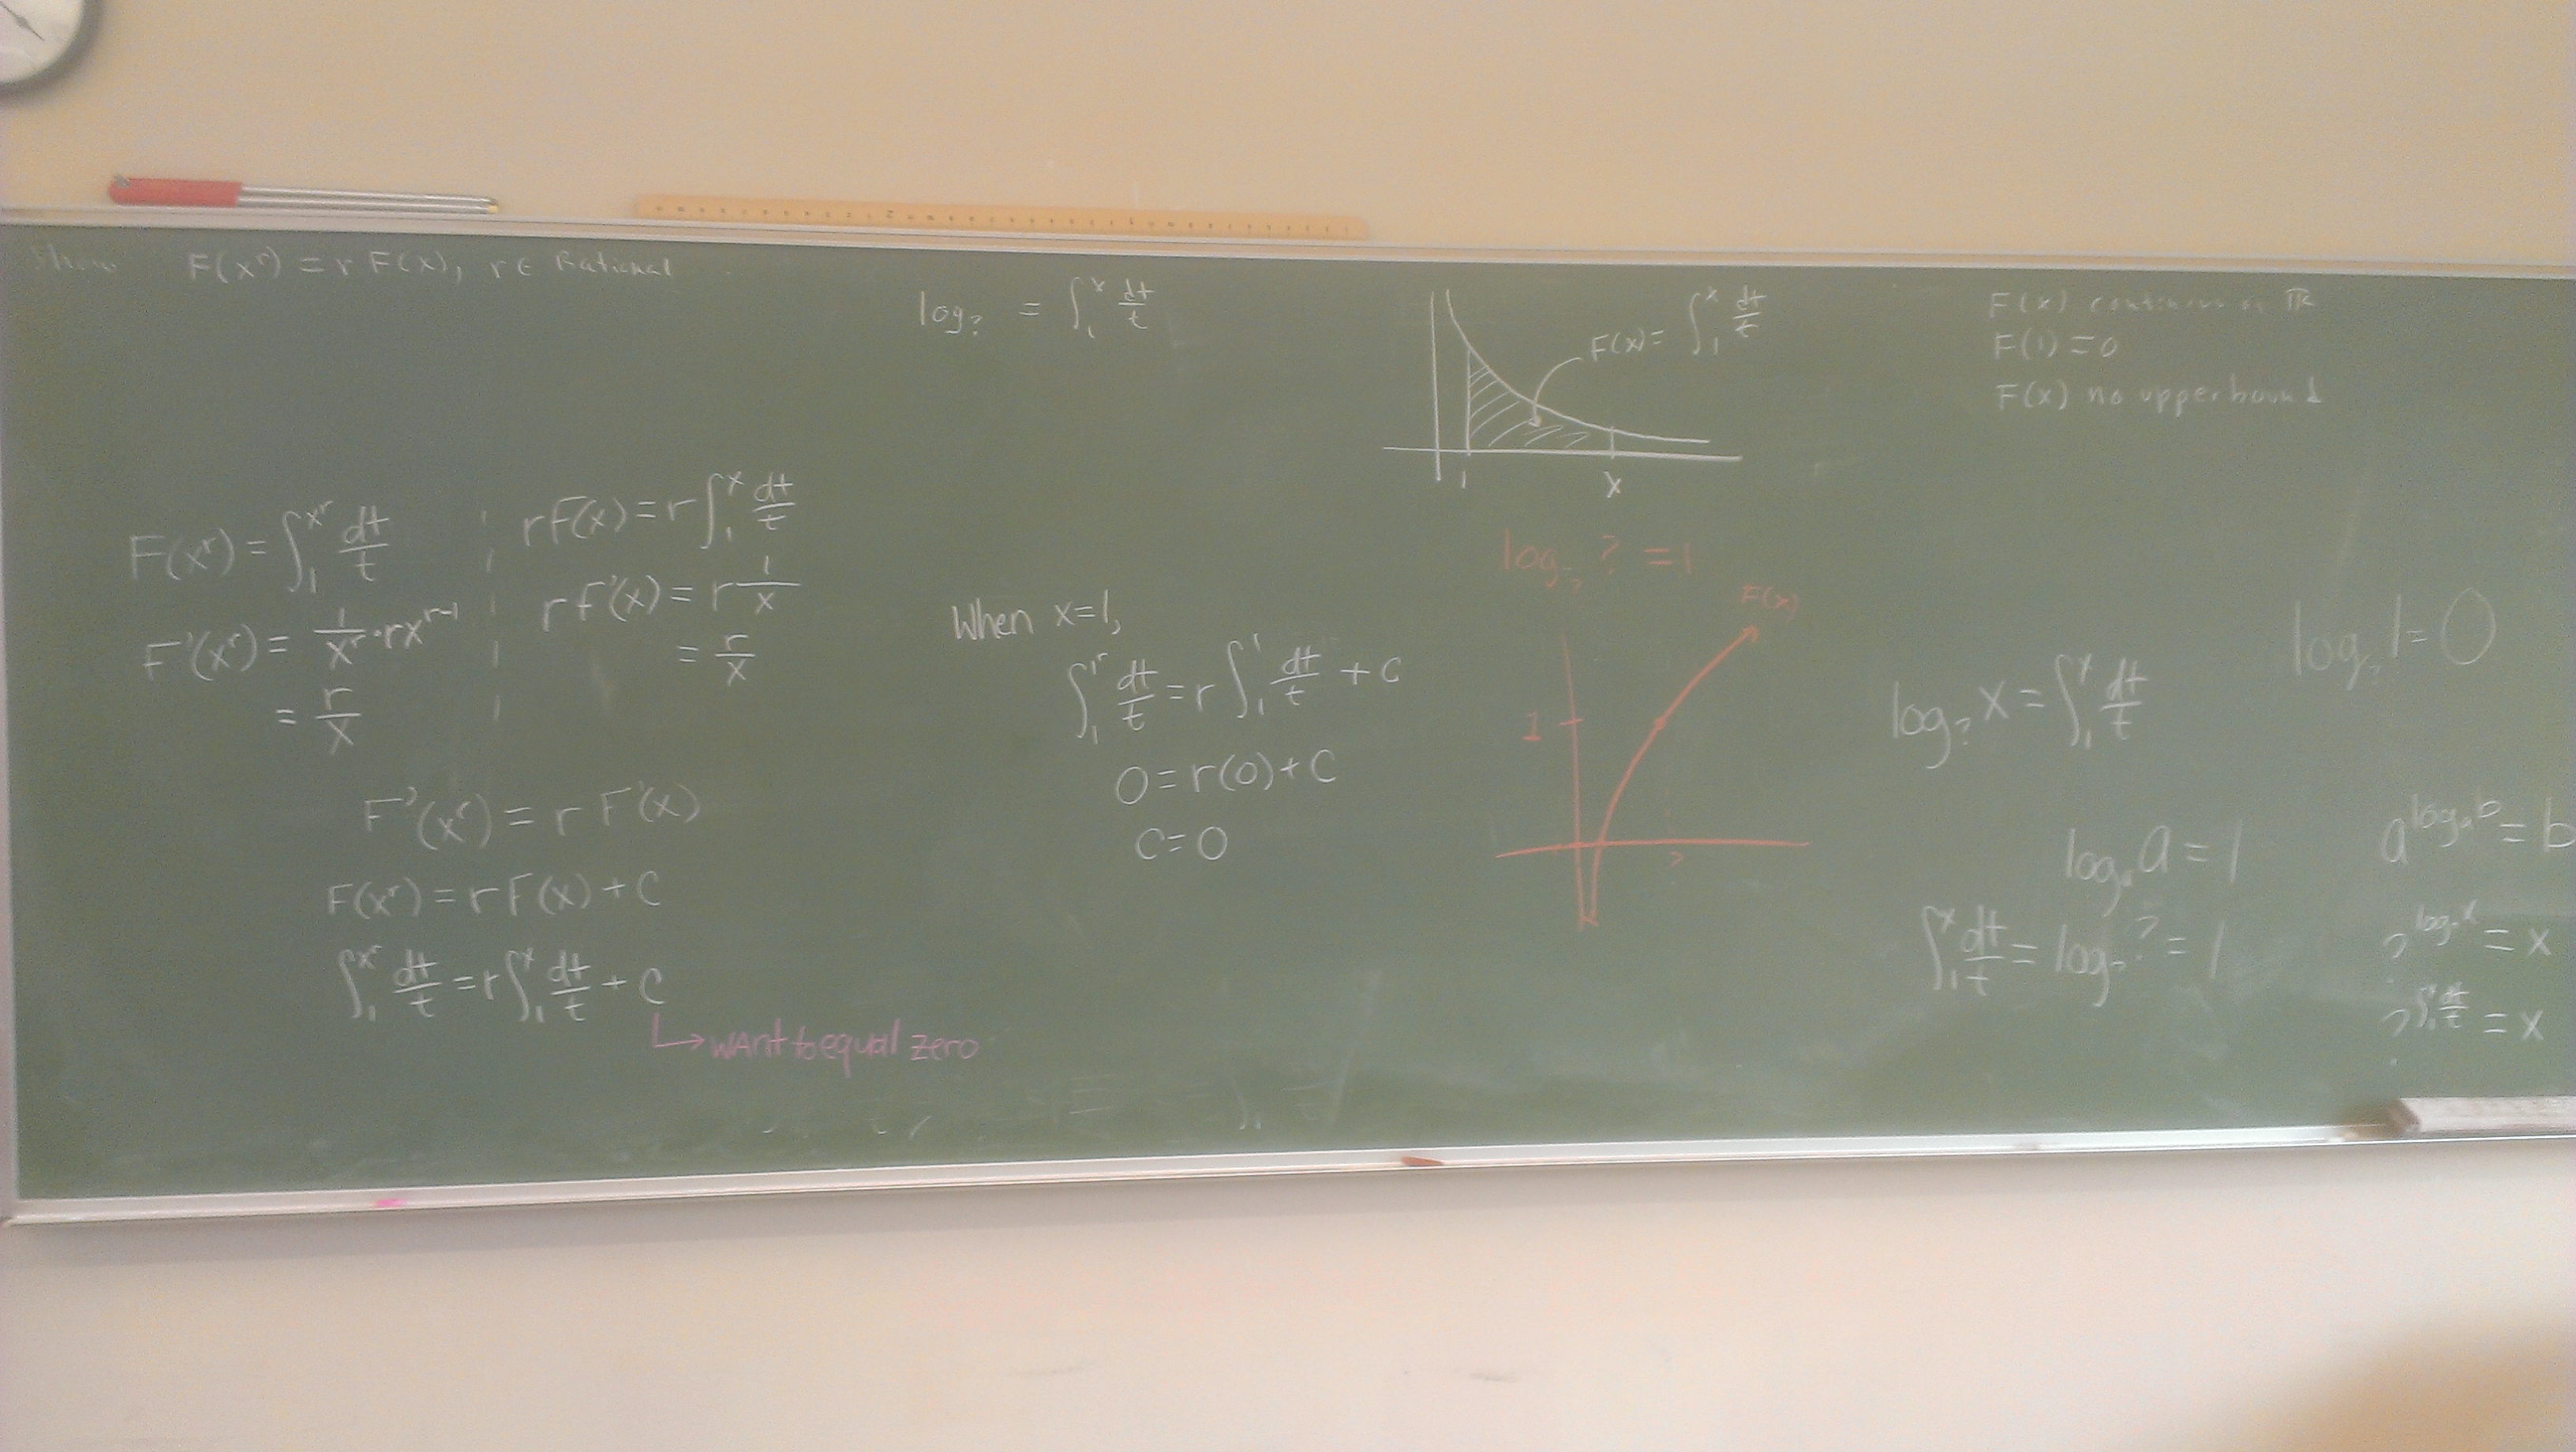 Show F(x^r) = r F(x), r ∈ Rational
log_? = ∫_1^x dt/t
F(x) = ∫_1^x dt/t
1 x
F(x) continuous on ℝ
F(1) = 0
F(x) no upper bound
F(x^r) = ∫_1^{x^r} dt/t
F'(x^r) = 1/x^r · r x^{r-1}
= r/x
r F(x) = r ∫_1^x dt/t
r F'(x) = r 1/x
= r/x
F'(x^r) = r F'(x)
F(x^r) = r F(x) + C
∫_1^{x^r} dt/t = r ∫_1^x dt/t + C
↳ want to equal zero
When x=1,
∫_1^{1^r} dt/t = r ∫_1^1 dt/t + C
0 = r(0) + C
C = 0
log_? ? = 1
F(x)
1
?
log_? x = ∫_1^x dt/t
log_? 1 = 0
log_a a = 1
∫_1^x dt/t = log_? ? = 1
a^{log_a b} = b
?^{log_? x} = x
?^{∫_1^x dt/t} = x